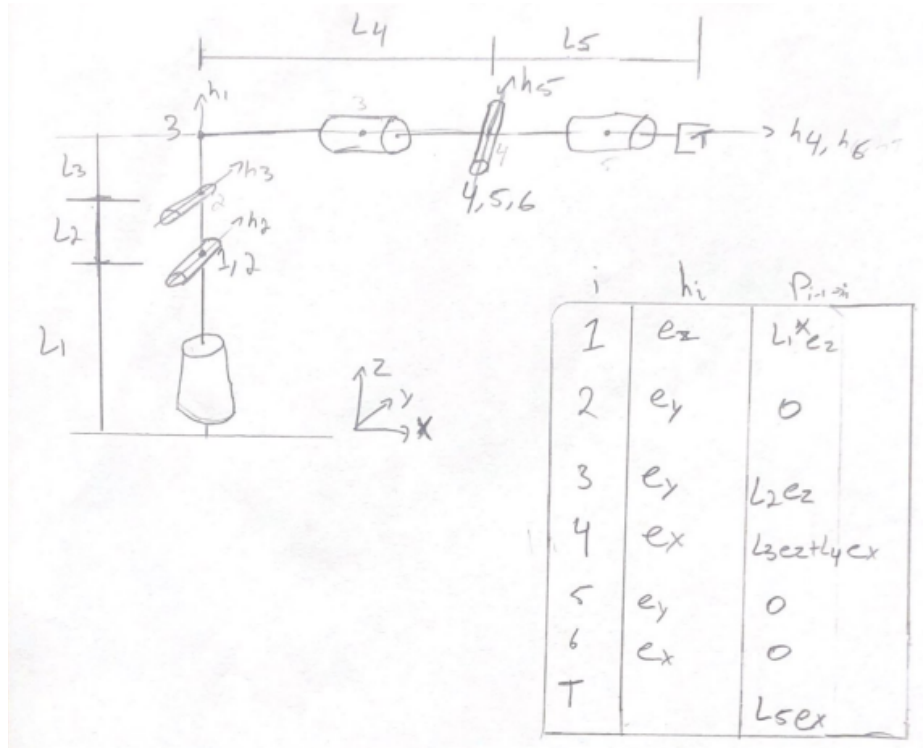 L4
L5
h1
h5
3
3
4
5
T
h4, h6
4,5,6
L3
h3
2
L2
h2
1,2
L1
Z
Y
X
i hi Pi-1→i
1 ez L1*ez
2 ey 0
3 ey L2ez
4 ex L3ez+L4ex
5 ey 0
6 ex 0
T L5ex